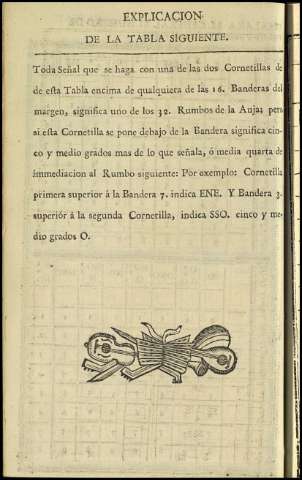 EXPLICACION
DE LA TABLA SIGUIENTE.
Toda Señal que se haga con una de las dos Cornetillas de
de esta Tabla encima de qualquiera de las 16. Banderas del
margen, significa uno de los 32. Rumbos de la Auja; pero
si esta Cornetilla se pone debajo de la Bandera significa cin-
co y medio grados mas de lo que señala, ó media quarta de
immediacion al Rumbo siguiente: Por exemplo: Cornetilla
primera superior á la Bandera 7. indica ENE. Y Bandera 3.
superiór á la segunda Cornetilla, indica SSO. cinco y me-
dio grados O.